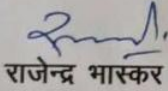 राजेन्द्र भास्कर